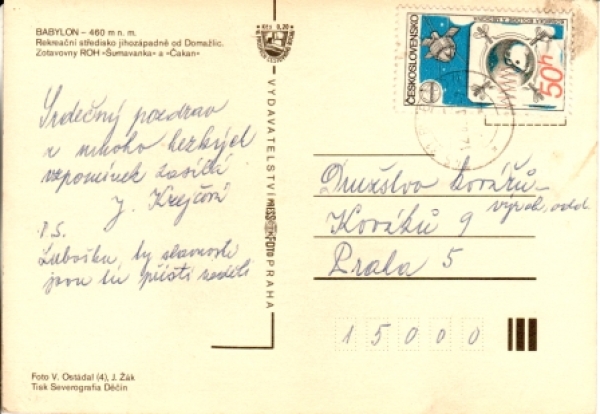 BABYLON – 460 m n. m.
Rekreační středisko jihozápadně od Domažlic.
Zotavovny ROH »Šumavanka« a »Čakan«
Srdečný pozdrav
a mnoho hezkých
vzpomínek zasílá
J. Krejčová
P.S.
Luboško, ty slavnosti
jsou tu příští neděli
Kčs 0,20
VYDAVATELSTVÍ PRESSFOTO PRAHA
ČESKOSLOVENSKO
50h
Družstvo kovářů
výrob. odd.
Kováků 9
Praha 5
15000
Foto V. Ostádal (4), J. Žák
Tisk Severografia Děčín